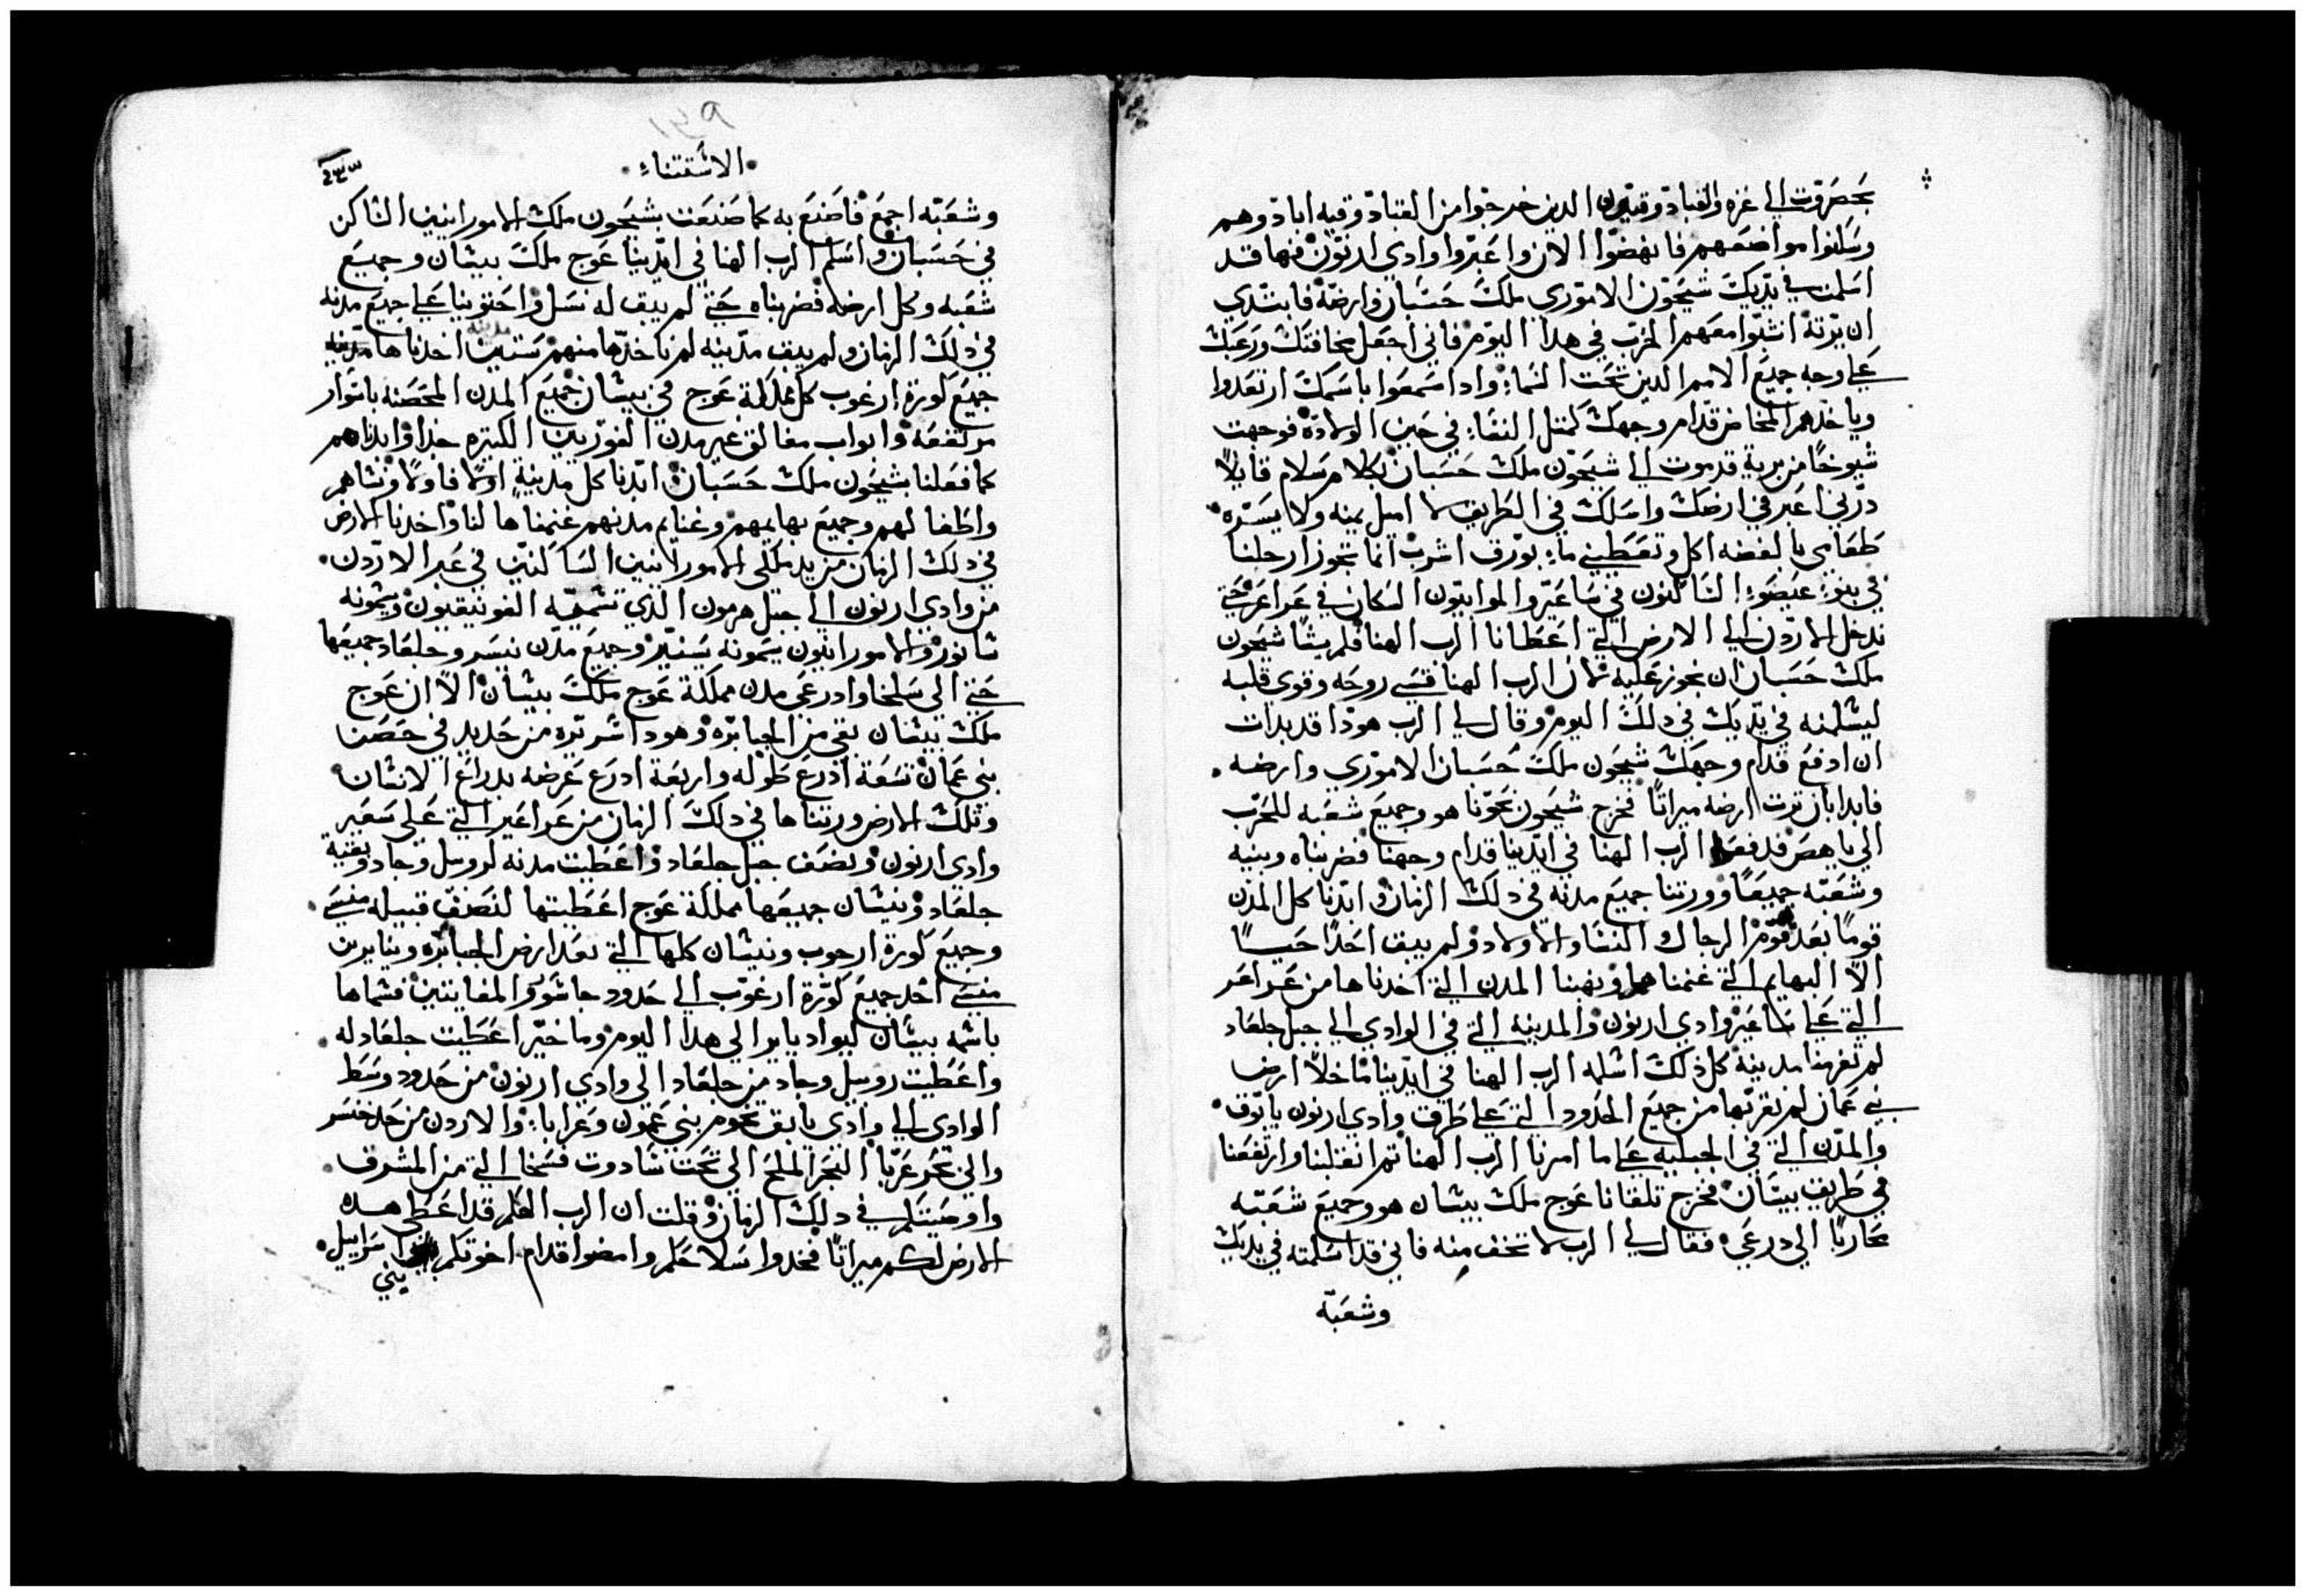 بحصروت الي غزه والقبادوقيون الدين خرجوا من القبادوقيه ابادوهم
وسكنوا مواضعهم فانهضوا الان واعبروا وادي ارنون فها قد
اسلمت في يديك شيحون الاموري ملك حسبان وارضه فابتدي
ان ترته انشوا معهم الحرب في هدا اليوم فاني اجعل مخافتك ورعبك
علي وجه جميع الامم الدين تحت السما؛ وادا سمعوا باسمك ارتعدوا
وياخدهم المخاض قدام وجهك كمتل النفسا؛ في حين الولادة فوجهت
شيوخًا من برية قدموت الي شيحون ملك حسبان بكلام سلام قايلاً
دربي اعبر في ارضك واسلك في الطريق لا اميل يمنه ولا يسره
طعامي بالفضه اكل وتعطيني ما؛ بورق اشرب انما تجوز ارجلنا
في بنو؛ عيصو؛ الساكنون في ساعير والموابيون السكان في عراعر حتي
ندخل الاردن الي الارض التي اعطانا الرب الهنا فلم يشا شيحون
ملك حسبان ان نجوز عليه لان الرب الهنا قسي روحه وقوي قلبه
ليسلمه في يديك في دلك اليوم وقال لي الرب هودا قد بدات
ان ادفع قدام وجهك شيحون ملك حسبان الاموري وارضه
فابدا بان ترت ارضه ميراتًا فخرج شيحون نحونا هو وجميع شعبه للحرب
الي ياهص فدفعه الرب الهنا في ايدينا قدام وجهنا فضربناه وبنيه
وشعبه جميعًا وورتنا جميع مدنه في دلك الزمان وابدنا كل المدن
قومًا بعد قوم الرجال والنسا والاولاد ولم يبق احدًا حيًا
الا البهايم التي غنمناها ونهبنا المدن التي اخدناها من عراعر
التي علي شاعير وادي ارنون والمدينه التي في الوادي الي جبل جلعاد
لم تفوتنا مدينة كل ذلك اسلمه الرب الهنا في ايدينا ما خلا ارض
بني عمان لم نقربها من جميع الحدود التي علي طرق وادي ارنون يابوق
والمدن التي في الجبليه علي ما امرنا الرب الهنا تم انقلبنا وارتفعنا
في طريق بيشان فخرج تلقانا عوج ملك بيشان هو وجميع شعبه
محاربًا الي درعي فقال لي الرب لا تخف منه فاني قد اسلمته في يديك
وشعبه
١٣٩
الاشتتناء
٢٣٣
وشعبه اجمع فاصنع به كما صنعت بشيحون ملك الامورانيين الساكن
في حسبان واسلم الرب الهنا في ايدينا عوج ملك بيشان وجميع
شعبه وكل ارضه فضربناه حتي لم يبق له نسل واحتوينا علي جميع مدنه
في دلك الزمان ولم يبق مدينه لم ناخدها منهم ستين اخدناها مدينه
جميع كورة ارغوب كل مملكة عوج في بيشان جميع المدن المحصنه باسوار
مرتفعه وابواب مغالق غير مدن الفورزيين الكتيره جدا وابدناهم
كما فعلنا بشيحون ملك حسبان ابدنا كل مدينة اولا فاولا ونساهم
واطفالهم وجميع بهايمهم وغنايم مدنهم غنمناها لنا واخدنا الارض
في دلك الزمان من يد ملكي الامورانيين الساكنين في عبر الاردن
من وادي ارنون الي جبل هرمون الدي تسميه الفونيقيون ويسمونه
سانور والامورانيون يسمونه سنير وجميع مدن نيسر وجلعاد جميعها
حتي الي سلخا وادرعي مدن مملكة عوج ملك بيشان الا ان عوج
ملك بيشان بقي من الجبابره وهودا سريره من حديد في حصن
بني عمان تسعة ادرع طوله واربعة ادرع عرضه بدراع الانسان
وتلك الارض ورتناها في دلك الزمان من عراعير التي علي سعير
وادي ارنون ونصف جبل جلعاد واعطيت مدنه لروبيل وجاد وبقية
جلعاد وبيشان جميعها مملكة عوج اعطيتها لنصف قبيله منسي
وجميع كورة ارجوب وبيشان كلها التي تعد ارض الجبابره ويناير بن
منسي اخد جميع كورة ارغوب الي حدود جاشور والمغايتين فسماها
باسمه بيشان ليواد يابر الي هدا اليوم وماخير اعطيت جلعاد له
واعطيت روبيل وجاد من جلعاد الي وادي ارنون من حدود وسط
الوادي الي وادي يابق تخوم بني عمون وعرابا؛ والاردن من حد خنسر
والي بحر عربا البحر الملح الي تحت شادوت فسخا التي من المشرق
واوصيتكم في دلك الزمان وقلت ان الرب الهكم قد اعطي هده
الارض لكم ميراتًا فخدوا سلاحكم وامضوا قدام اخوتكم اسراييل
بني